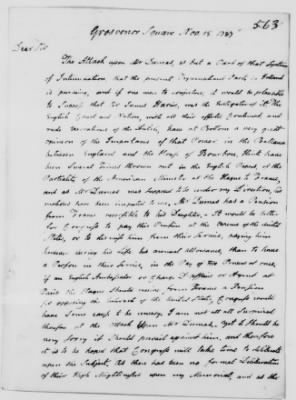 563
Grosvenor Square Nov. 15 1787
Dear Sir
The Attack upon Mr Dumas, is but a Part of that System
of Intimidation that the present organized Party in Holland
is pursuing, and if one was to conjecture, it would be plausible
to suspect that Sir James Harris, was the Instigator of it. The
English Court and Nation, with all their affected Contempt, and
rude of the Dutch, have at Bottom a very great
opinion of the Importance of that Power in the Ballance
between England and the House of Bourbon, there have
been several times thrown out in the English Papers, at the
Partiality of the American Minister at the Hague to France,
and as Mr Dumas was supposed to be under my Direction, his
have been imputed to me. Mr Dumas has a Pension
from France to his Daughter. It would be better
for Congress to pay this Pension at the Expence of the United
States, or to dismiss him from their Service, paying him
however during his Life his annual allowance, than to have
a Person in their Service, in the Pay of two Powers at once.
if an English Ambassador or Chargé D'affaires or Agent at
Paris the Hague should receive from France a Pension
for the Interest of the United States, Congress would
have some cause to be uneasy. I am not at all surprised
therefore at the Attack upon Mr Dumas. yet I should be
very sorry it should prevail against him, and therefore
it is to be hoped that Congress will take time to deliberate
upon the Subject. As there has been no formal Deliberation
of their High Mightinesses upon my Memorial, and as the